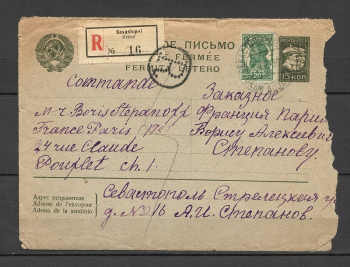 Sevastopol
R
№ 16
ПИСЬМО
FERMÉE
LETERO
15 КОП
Commande
Заказное
M-r Boris Stepanoff
Франция Париж
France Paris
Борису Алексеевичу
24 rue Claude
Степанову.
Pouplet ch. 1.
Адрес отправителя
Adresse de l'envoyeur
Adreso de la sendinto
Севастополь Стрелецкая
д. № 16 А.И. Степанов.